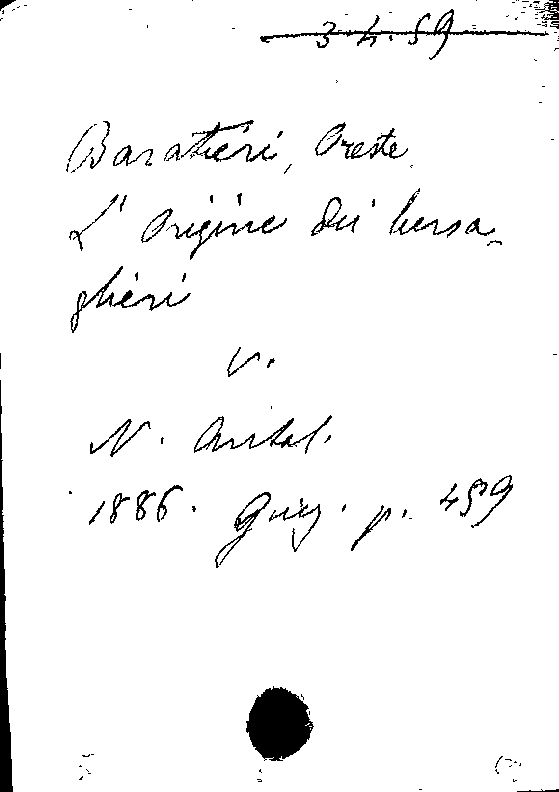 3 4. 59
Baratieri, Oreste
L' Origine dei bersa-
glieri
v.
N. Antol.
1886. Giug. p. 459